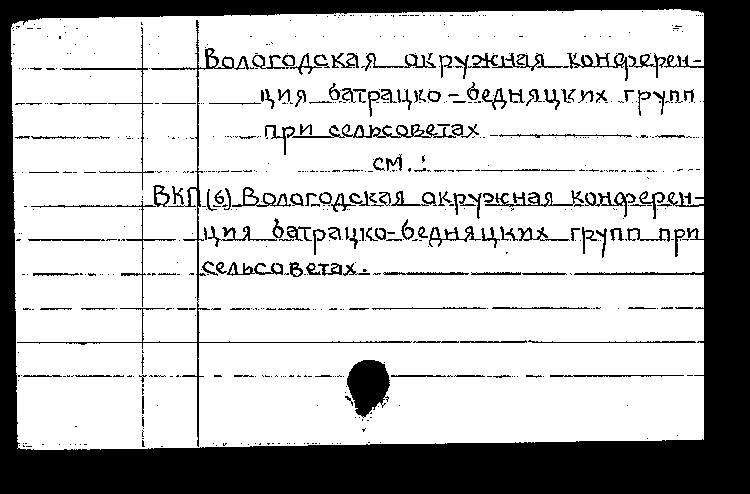 Вологодская окружная конферен-
ция батрацко-бедняцких групп
при сельсоветах
см.:
ВКП(б) Вологодская окружная конферен-
ция батрацко-бедняцких групп при
сельсоветах.